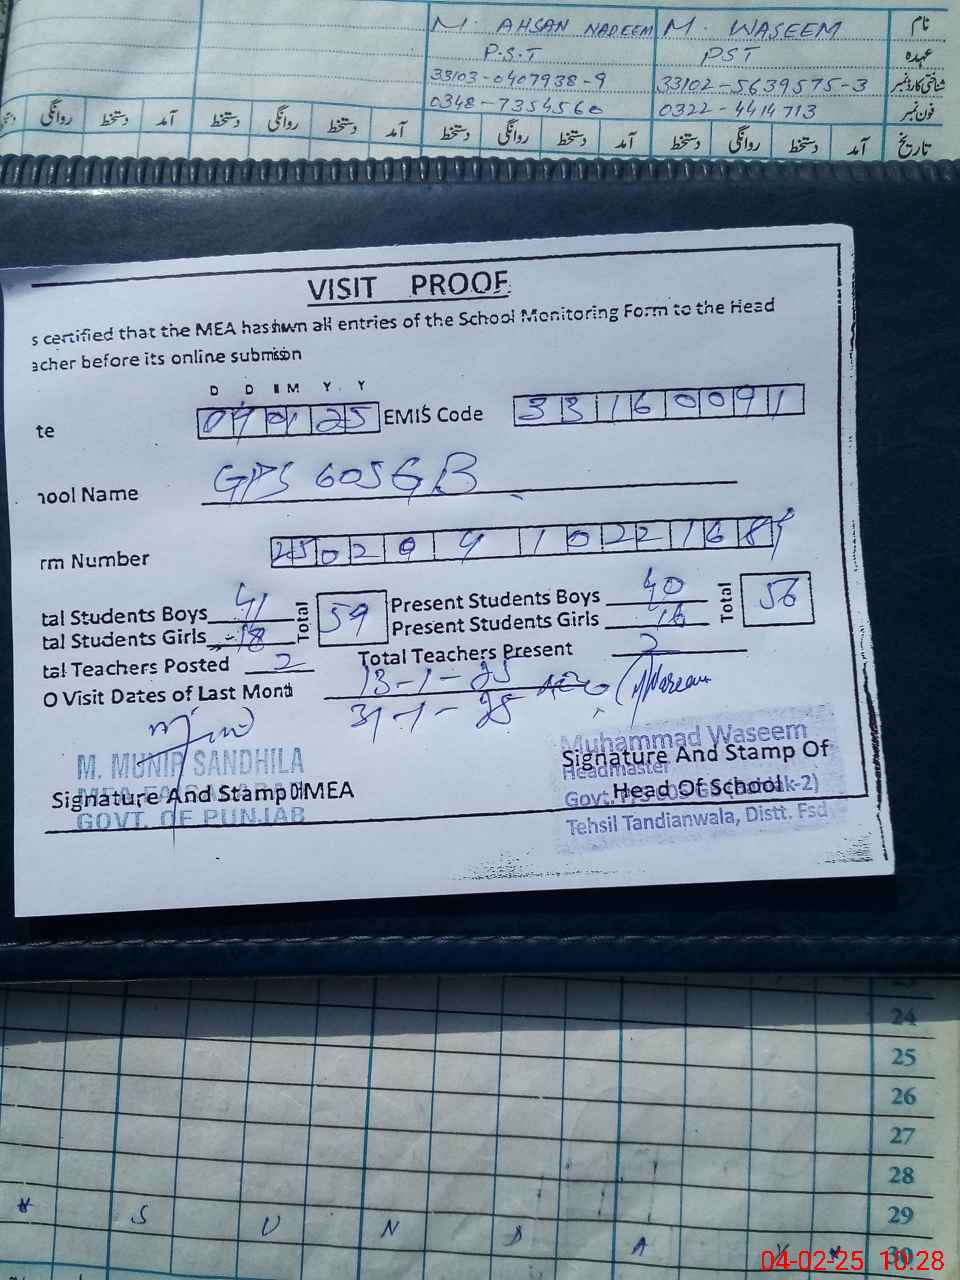 M. AHSAN NADEEM M. WASEEM نام
P.S.T PST عہدہ
33103-0407938-9 33102-5639575-3 شناختی کارڈ نمبر
0348-7354560 0322-4414713 فون نمبر
روانگی دستخط آمد دستخط روانگی دستخط آمد دستخط روانگی دستخط آمد دستخط روانگی دستخط آمد تاریخ
VISIT PROOF
s certified that the MEA has shown all entries of the School Monitoring Form to the Head
acher before its online submission
D D M M Y Y
te 25 EMIS Code 33160091
nool Name GPS 605 GB
rm Number
tal Students Boys 41 Total 59 Present Students Boys 40 Total 56
tal Students Girls 18 Present Students Girls 16
tal Teachers Posted 2 Total Teachers Present 2
O Visit Dates of Last Month 13-1-25
31-1-25
M. MUNIR SANDHILA
Signature And Stamp Of MEA
GOVT. OF PUNJAB
Muhammad Waseem
Signature And Stamp Of
Headmaster
Head Of School
Tehsil Tandianwala, Distt. Fsd
24
25
26
27
28
29
S U N D A Y 30
04-02-25 10:28